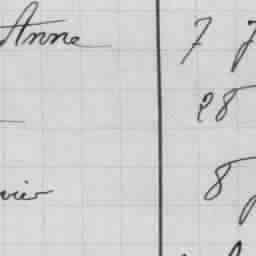 Anne 7 J
28
vier 8 J